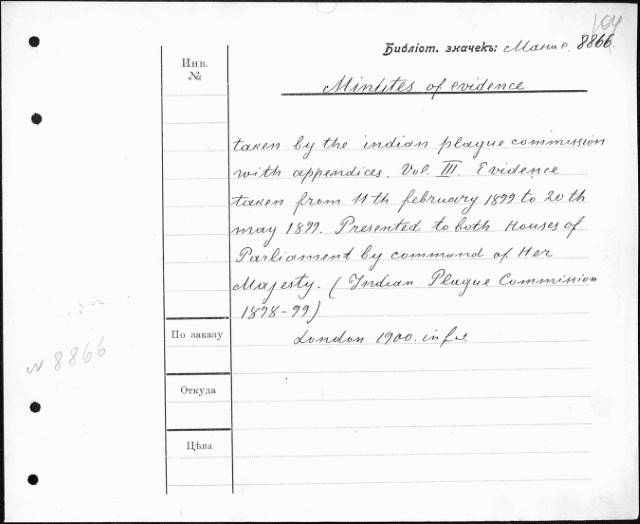 104
Библіот. значекъ: 8866.
Инв.
№
Minutes of evidence
taken by the indian plague commission
with appendices. Vol. III. Evidence
taken from 11 th february 1899 to 20 th
may 1899. Presented to both Houses of
Parliament by command of Her
Majesty. (Indian Plague Commission
1898-99)
По заказу
London 1900. in fol.
N 8866
Откуда
Цѣна